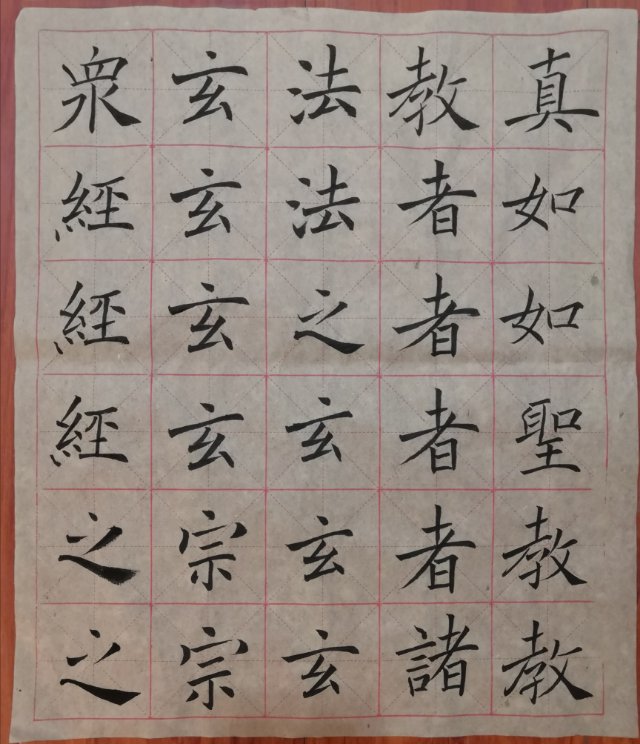 真如如聖教教
教者者者者諸
法法之玄玄玄
玄玄玄玄宗宗
衆經經經之之